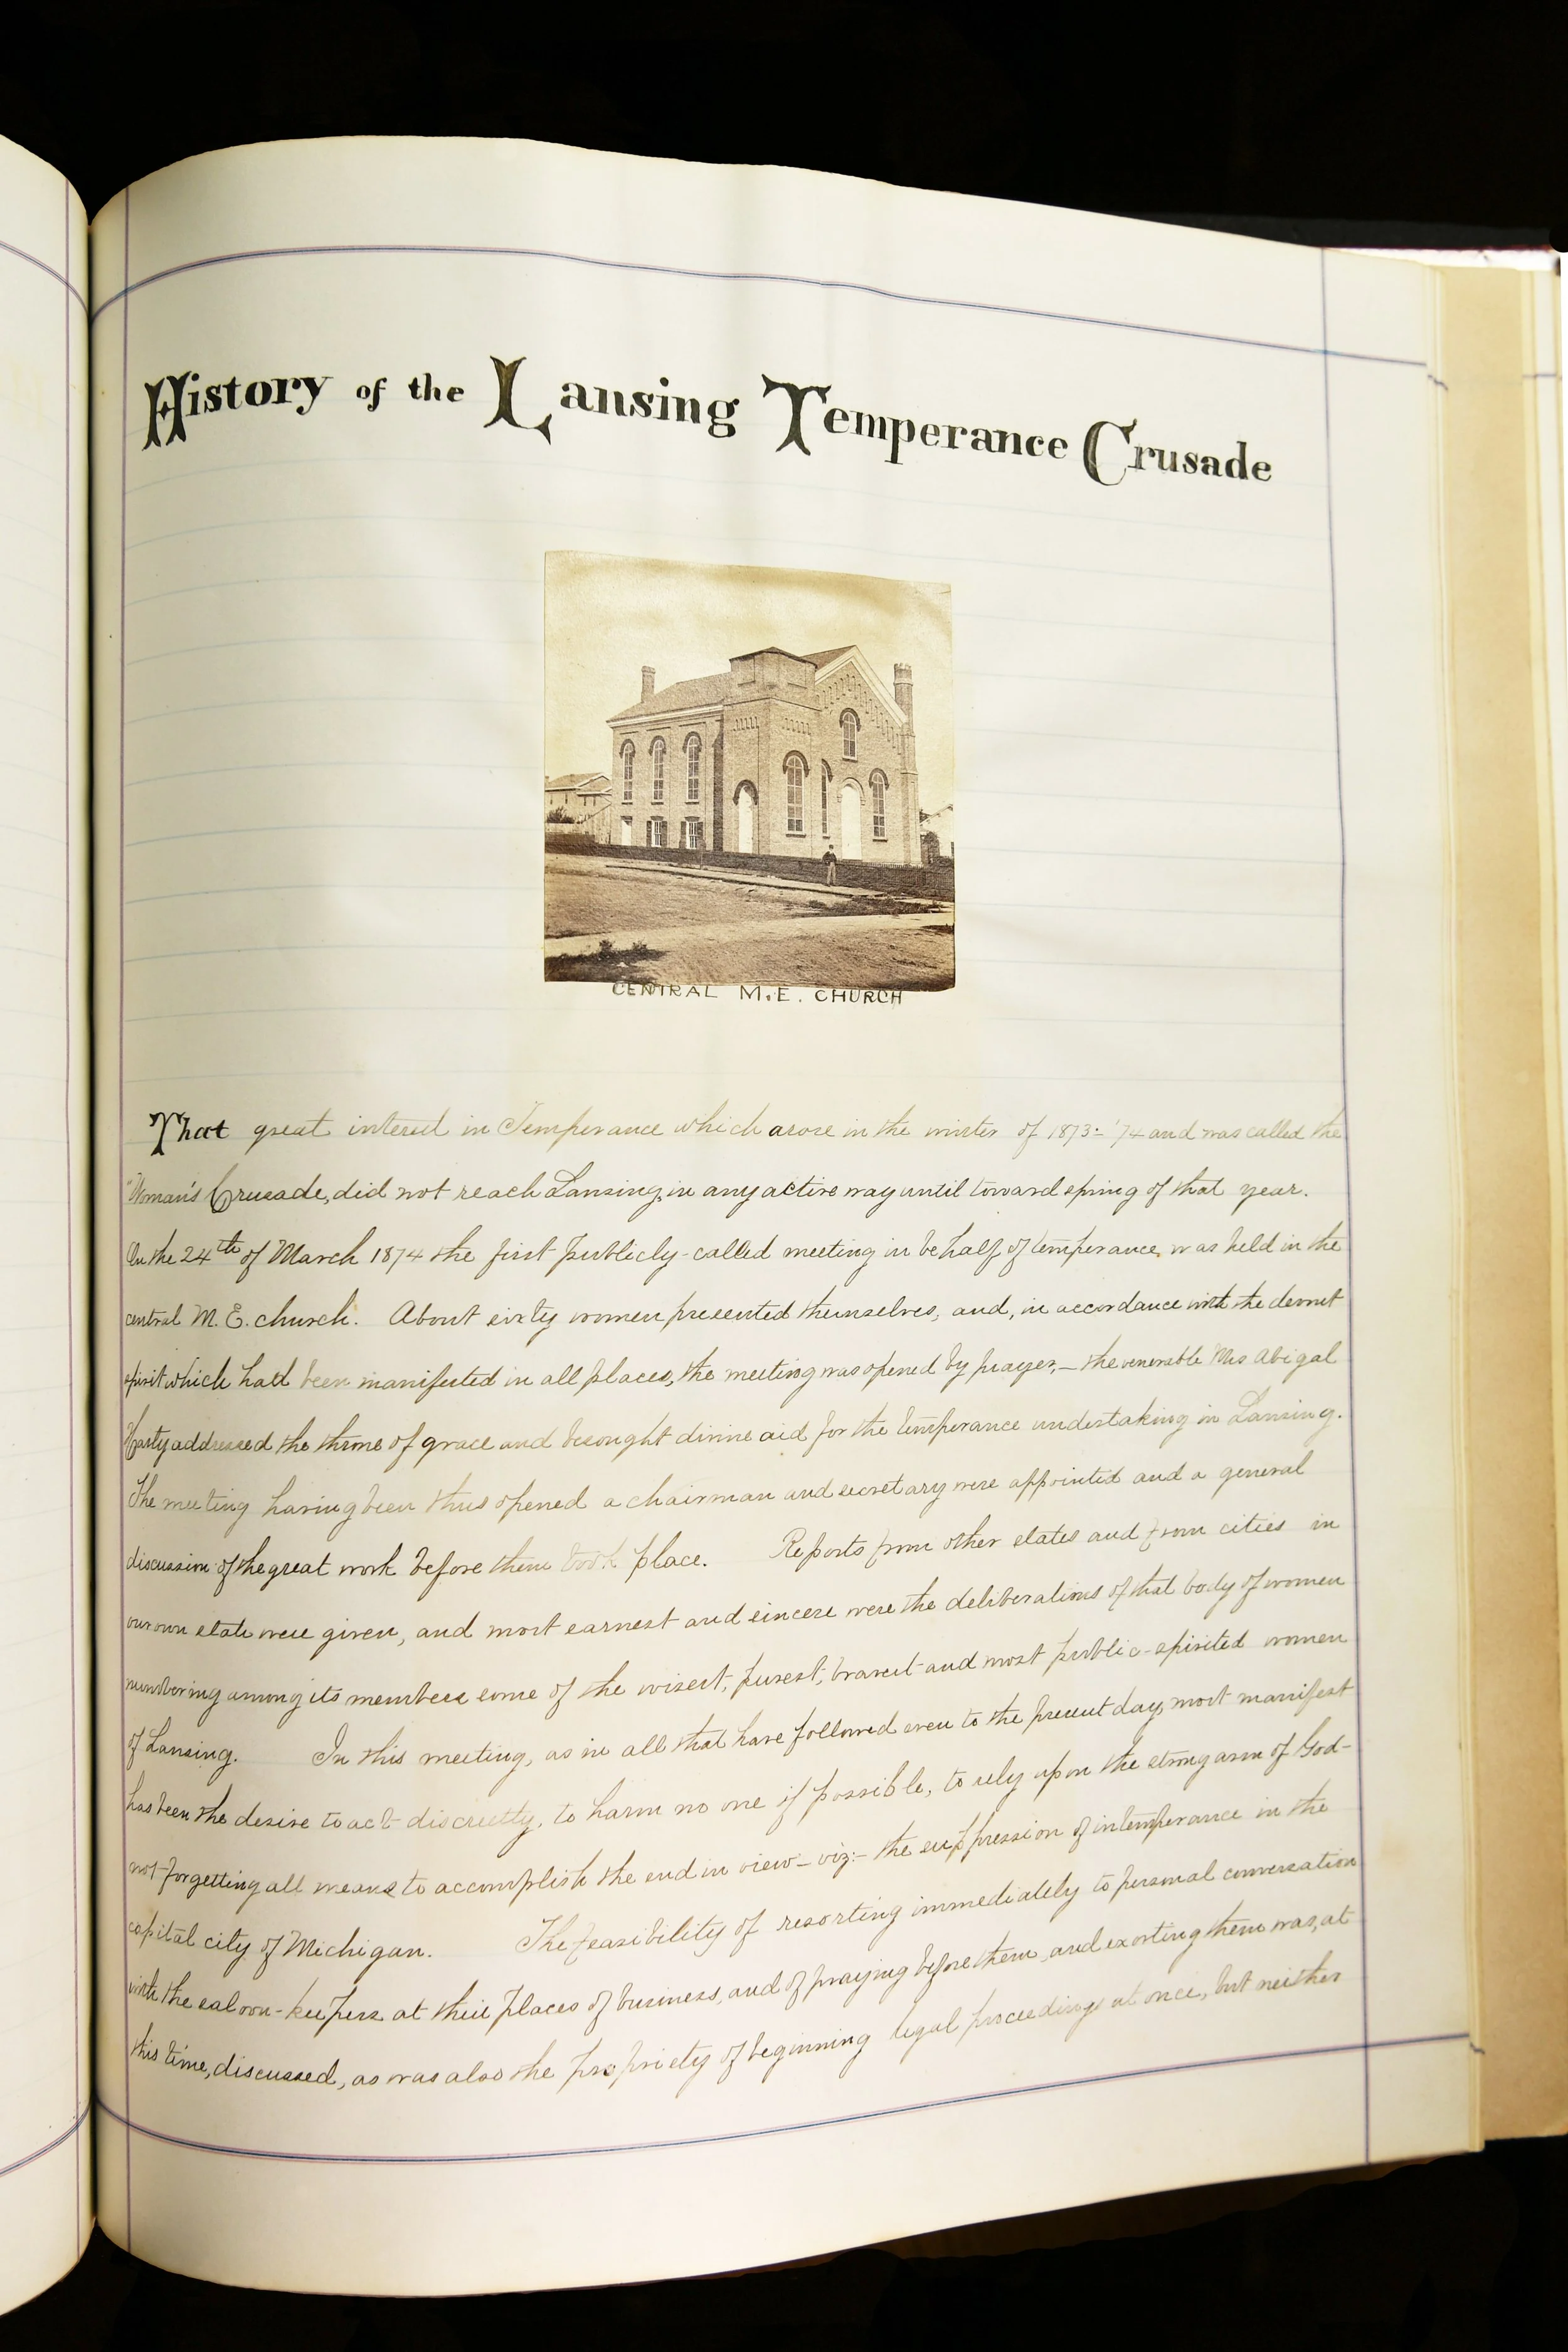 History of the Lansing Temperance Crusade
CENTRAL M.E. CHURCH
That great interest in Temperance which arose in the winter of 1873-'74 and was called the
"Woman's Crusade, did not reach Lansing, in any active way until toward spring of that year.
On the 24th of March 1874 the first publicly-called meeting in behalf of temperance, was held in the
central M. E. church. About sixty women presented themselves, and, in accordance with the devout
spirit which had been manifested in all places, the meeting was opened by prayer,— the venerable Mrs Abigal
addressed the throne of grace and besought divine aid for the temperance undertaking in Lansing.
The meeting having been thus opened a chairman and secretary were appointed and a general
discussion of the great work before them took place. Reports from other states and from cities in
our own state were given, and most earnest and sincere were the deliberations of that body of women
numbering among its members some of the wisest, purest, bravest and most public-spirited women
of Lansing. In this meeting, as in all that have followed even to the present day, most manifest
has been the desire to act discreetly, to harm no one if possible, to rely upon the strong arm of God-
not forgetting all means to accomplish the end in view— viz:— the suppression of intemperance in the
capital city of Michigan. The feasibility of resorting immediately to personal conversation
with the saloon-keepers at their places of business, and of praying before them, and exorting them was, at
this time, discussed, as was also the propriety of beginning legal proceedings at once, but neither